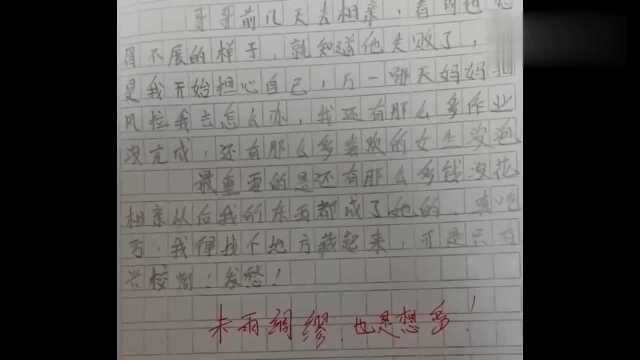 哥哥前几天去相亲，看到他愁
眉不展的样子，就知道他失败了，
是我开始担心自己，万一哪天妈妈
风拉我去怎么办，我还有那么多作业
没完成，还有那么多喜欢的女生没追
最重要的是还有那么多钱没花
相亲以后我的东西都成了她的，
我得找个地方藏起来，可是只有
发愁！
未雨绸缪，也是想多！